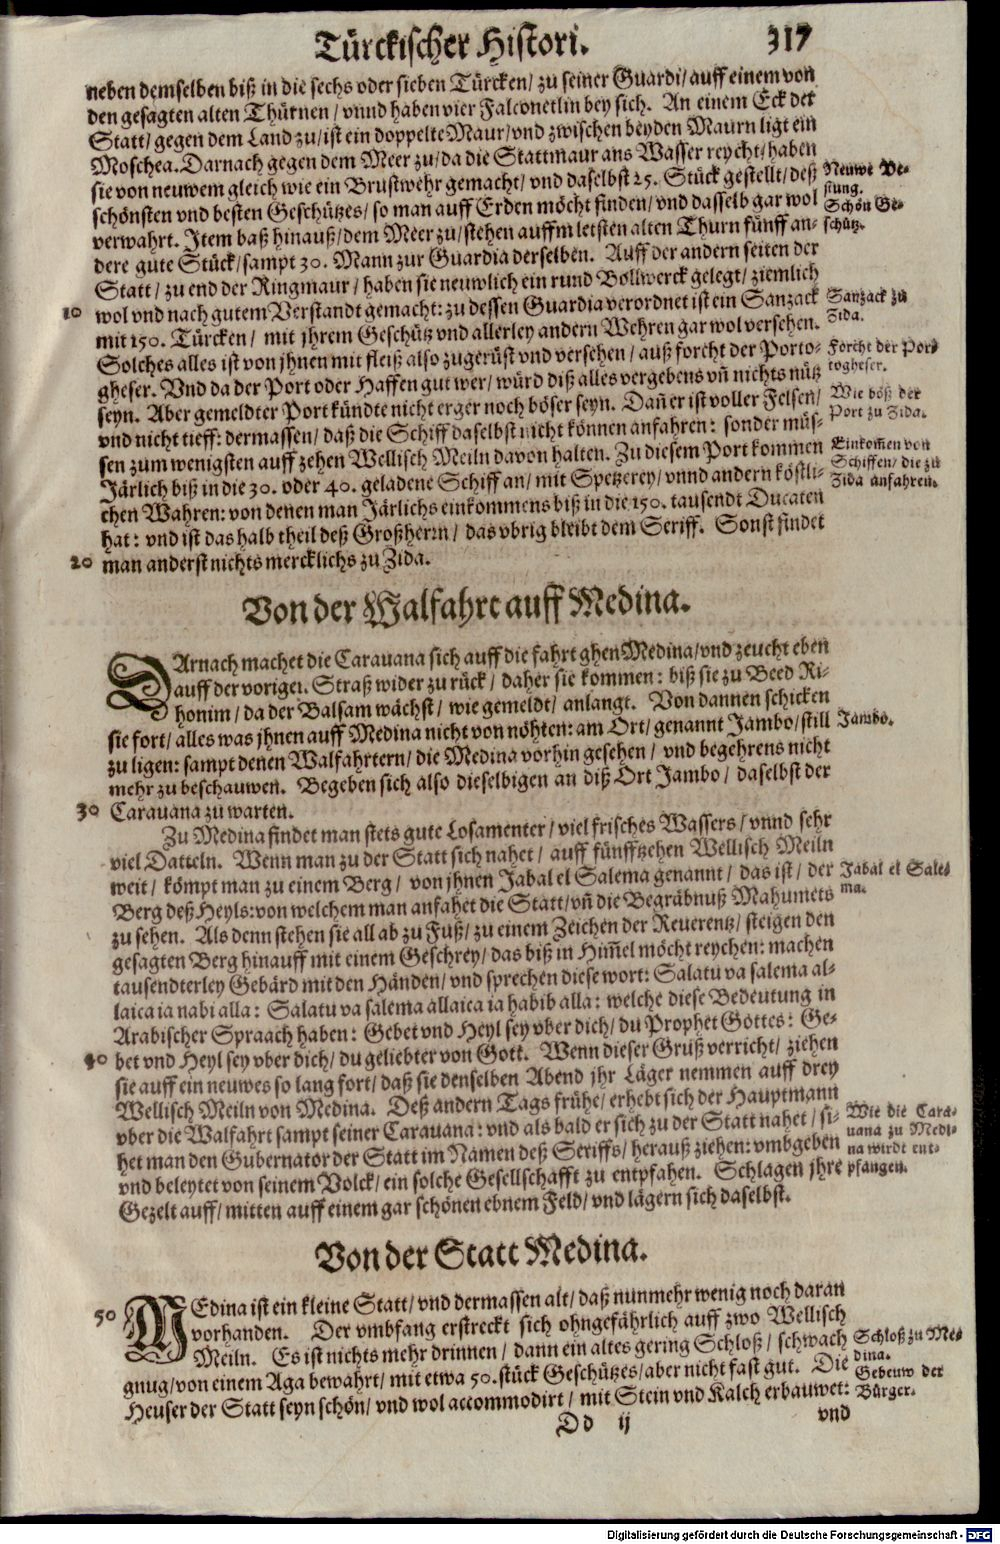 Türckischer Histori. 317
neben demselben biß in die sechs oder sieben Türcken/ zu seiner Guardi/ auff einem von
den gesagten alten Thürnen/ vnnd haben vier Falconetlin bey sich. An einem Eck der
Statt/ gegen dem Land zu/ ist ein doppelte Maur/ vnd zwischen beyden Maurn ligt ein
Moschea. Darnach gegen dem Meer zu/ da die Stattmaur ans Wasser reycht/ haben
sie von neuwem gleich wie ein Brustwehr gemacht/ vnd daselbst 25. Stück gestellt/ deß
schönsten vnd besten Geschützes/ so man auff Erden möcht finden/ vnd dasselb gar wol
verwahrt. Item baß hinauß/ dem Meer zu/ stehen auffm letsten alten Thurn fünff an-
dere gute Stück/ sampt 30. Mann zur Guardia derselben. Auff der andern seiten der
Statt/ zu end der Ringmaur/ haben sie neuwlich ein rund Bollwerck gelegt/ ziemlich
10 wol vnd nach gutem Verstandt gemacht: zu dessen Guardia verordnet ist ein Sanzack
mit 150. Türcken/ mit jhrem Geschütz vnd allerley andern Wehren gar wol versehen.
Solches alles ist von jhnen mit fleiß also zugerüst vnd versehen/ auß forcht der Porto-
gheser. Vnd da der Port oder Haffen gut wer/ würd diß alles vergebens vñ nichts nütz
seyn. Aber gemeldter Port kündte nicht erger noch böser seyn. Dañ er ist voller Felsen/
vnd nicht tieff: dermassen/ daß die Schiff daselbst nicht können anfahren: sonder müs-
sen zum wenigsten auff zehen Wellisch Meiln davon halten. Zu diesem Port kommen
Järlich biß in die 30. oder 40. geladene Schiff an/ mit Spetzerey/ vnnd andern köstli-
chen Wahren: von denen man Järlichs einkommens biß in die 150. tausendt Ducaten
hat: vnd ist das halb theil deß Großherrn/ das vbrig bleibt dem Seriff. Sonst findet
20 man anderst nichts mercklichs zu Zida.
Neuwe Ve-
stung.
Schön Ge-
schütz.
Sanzack zu
Zida.
Forcht der Por-
togheser.
Wie böß der
Port zu Zida.
Einkom̃en von
Schiffen/ die zu
Zida anfahren.
Von der Walfahrt auff Medina.
DArnach machet die Carauana sich auff die fahrt ghen Medina/ vnd zeucht eben
auff der vorigen Straß wider zu rück/ daher sie kommen: biß sie zu Beed Ri-
honim/ da der Balsam wächst/ wie gemeldt/ anlangt. Von dannen schicken
sie fort/ alles was jhnen auff Medina nicht von nöhten: am Ort/ genannt Jambo/ still
zu ligen: sampt denen Walfahrtern/ die Medina vorhin gesehen/ vnd begehrens nicht
mehr zu beschauwen. Begeben sich also dieselbigen an diß Ort Jambo/ daselbst der
30 Carauana zu warten.
Jambo.
Zu Medina findet man stets gute Losamenter/ viel frisches Wassers/ vnnd sehr
viel Datteln. Wenn man zu der Statt sich nahet/ auff fünfftzehen Wellisch Meiln
weit/ kömpt man zu einem Berg/ von jhnen Jabal el Salema genannt/ das ist/ der
Berg deß Heyls: von welchem man anfahet die Statt/ vñ die Begräbnuß Mahumets
zu sehen. Als denn stehen sie all ab zu Fuß/ zu einem Zeichen der Reuerentz/ steigen den
gesagten Berg hinauff mit einem Geschrey/ das biß in Him̃el möcht reychen: machen
tausendterley Gebärd mit den Händen/ vnd sprechen diese wort: Salatu va salema al-
laica ia nabi alla: Salatu va salema allaica ia habib alla: welche diese Bedeutung in
Arabischer Spraach haben: Gebet vnd Heyl sey vber dich/ du Prophet Gottes: Ge-
40 bet vnd Heyl sey vber dich/ du geliebter von Gott. Wenn dieser Gruß verricht/ ziehen
sie auff ein neuwes so lang fort/ daß sie denselben Abend jhr Läger nemmen auff drey
Wellisch Meiln von Medina. Deß andern Tags frühe/ erhebt sich der Hauptmann
vber die Walfahrt sampt seiner Carauana: vnd als bald er sich zu der Statt nahet/ si-
het man den Gubernator der Statt im Namen deß Seriffs/ herauß ziehen: vmbgeben
vnd beleytet von seinem Volck/ ein solche Gesellschafft zu entpfahen. Schlagen jhre
Gezelt auff/ mitten auff einem gar schönen ebnem Feld/ vnd lägern sich daselbst.
Jabal el Sale-
ma.
Wie die Cara-
uana zu Medi-
na wirdt ent-
pfangen.
Von der Statt Medina.
50 MEdina ist ein kleine Statt/ vnd dermassen alt/ daß nunmehr wenig noch daran
vorhanden. Der vmbfang erstreckt sich ohngefährlich auff zwo Wellisch
Meiln. Es ist nichts mehr drinnen/ dann ein altes gering Schloß/ schwach
gnug/ von einem Aga bewahrt/ mit etwa 50. stück Geschützes/ aber nicht fast gut. Die
Heuser der Statt seyn schön/ vnd wol accommodirt/ mit Stein vnd Kalch erbauwet:
Schloß zu Me-
dina.
Gebeuw der
Bürger.
Dd ij vnd
Digitalisierung gefördert durch die Deutsche Forschungsgemeinschaft - DFG